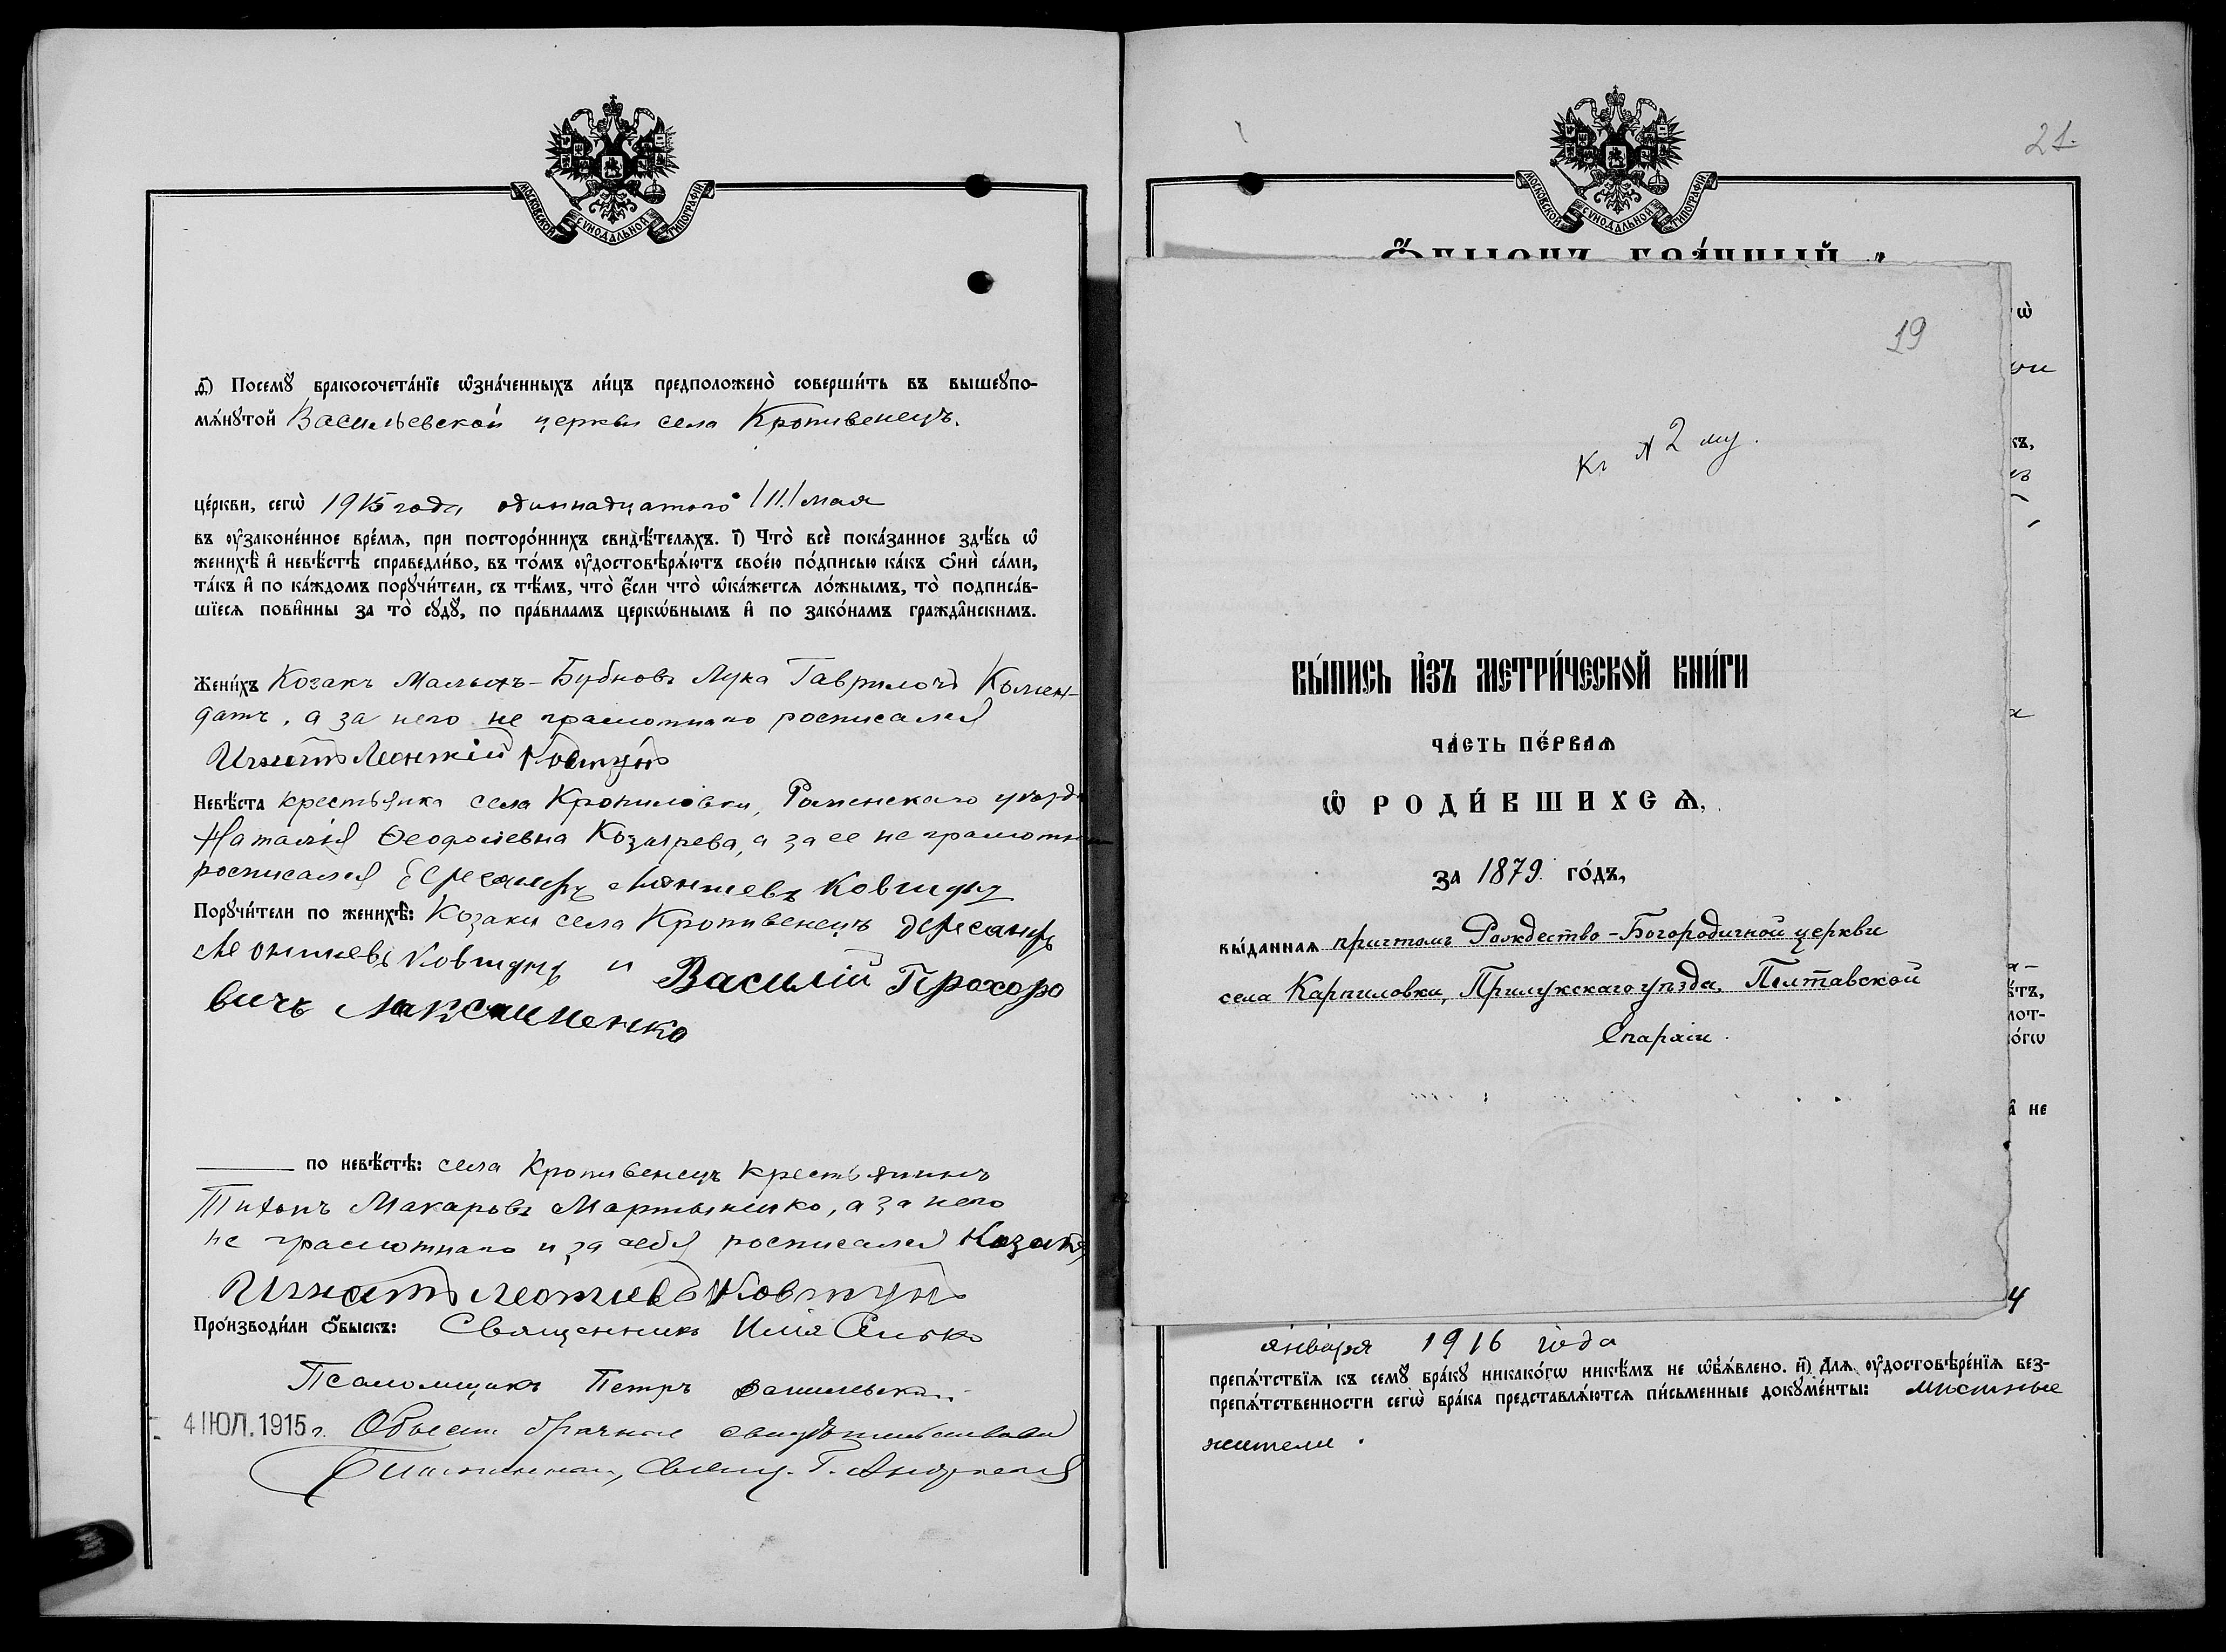 МОСКОВСКОЙ СѴНОДАЛЬНОЙ ТИПОГРАФІИ
Посемꙋ̀ бракосочета́нїе ѡ҆зна́ченныхъ ли́цъ предположено̀ соверши́ть въ вышеꙋпо-
мѧ́нꙋтой Васильевской церкви села Кропивенецъ.
це́ркви, сегѡ̀ 1915 года, одиннадцатого /11/ мая
въ ᲂу҆законе́нное вре́мѧ, при посторо́ннихъ свидѣ́телѧхъ. і҃) Что̀ всѐ пока́занное здѣ́сь ѡ҆
женихѣ̀ и҆ невѣ́стѣ справедли́во, въ то́мъ ᲂу҆достовѣрѧ́ютъ свое́ю по́дписью ка́къ ѻ҆нѝ са́ми,
та́къ и҆ по ка́ждомъ порꙋчи́тели, съ тѣ́мъ, что̀ є҆́сли что̀ ѡ҆ка́жетсѧ ло́жнымъ, то̀ подписа́в-
шїесѧ пови́нны за то̀ сꙋдꙋ̀, по пра́виламъ церкѡ́внымъ и҆ по зако́намъ гражда́нскимъ.
Жени́хъ Козакъ Малыхъ-Бубновъ Лука Гаврилочъ Комен-
датъ, а за него не грамотнаго росписался
Игнатъ Леонтіи Ковтунъ
Невѣ́ста крестьянка села Кропиловки, Роменскаго уѣзда
Наталія Ѳеодосіевна Козырева, а за ее не грамотную
росписался Леонтіевъ Ковтунъ
Порꙋчи́тели по женихѣ̀: Козаки села Кропивенецъ
Леонтіевъ Ковтунъ и Василій Прохоро
вичъ Максименко
по невѣ́стѣ: села Кропивенецъ крестьянинъ
Тихонъ Макаровъ Мартыненко, а за него
не грамотнаго и за себя росписался Козакъ
Игнатъ Леотиевъ Ковтунъ
Про́изводи́ли ѻ҆́быскъ: Священникъ Илія
Псаломщикъ Петръ
4 ІЮЛ. 1915 г. Обыскъ брачный свидѣтельствовалъ
Благочинный, Свящ. Г.
21.
МОСКОВСКОЙ СѴНОДАЛЬНОЙ ТИПОГРАФІИ
19
Къ № 2 му.
ВЫ́ПИСЬ И҆ЗЪ МЕТРИ́ЧЕСКОЙ КНИ́ГИ
ЧА́СТЬ ПЕ́РВАѦ
Ѡ҆ РОДИ́ВШИХСѦ,
за 1879. го́дъ,
вы́даннаѧ причтомъ Рождество-Богородичной церкви
села Карпиловки, Прилукскаго уѣзда, Полтавской
Епархіи.
января 1916 года
препѧ́тствїѧ къ семꙋ̀ бра́кꙋ никако́гѡ никѣ́мъ не ѡ҆б̾ѧ́влено. и҃) Длѧ ᲂу҆достовѣре́нїѧ без-
препѧ́тственности сегѡ̀ бра́ка представлѧ́ютсѧ пи́сьменные докꙋме́нты: мѣстные
жители.